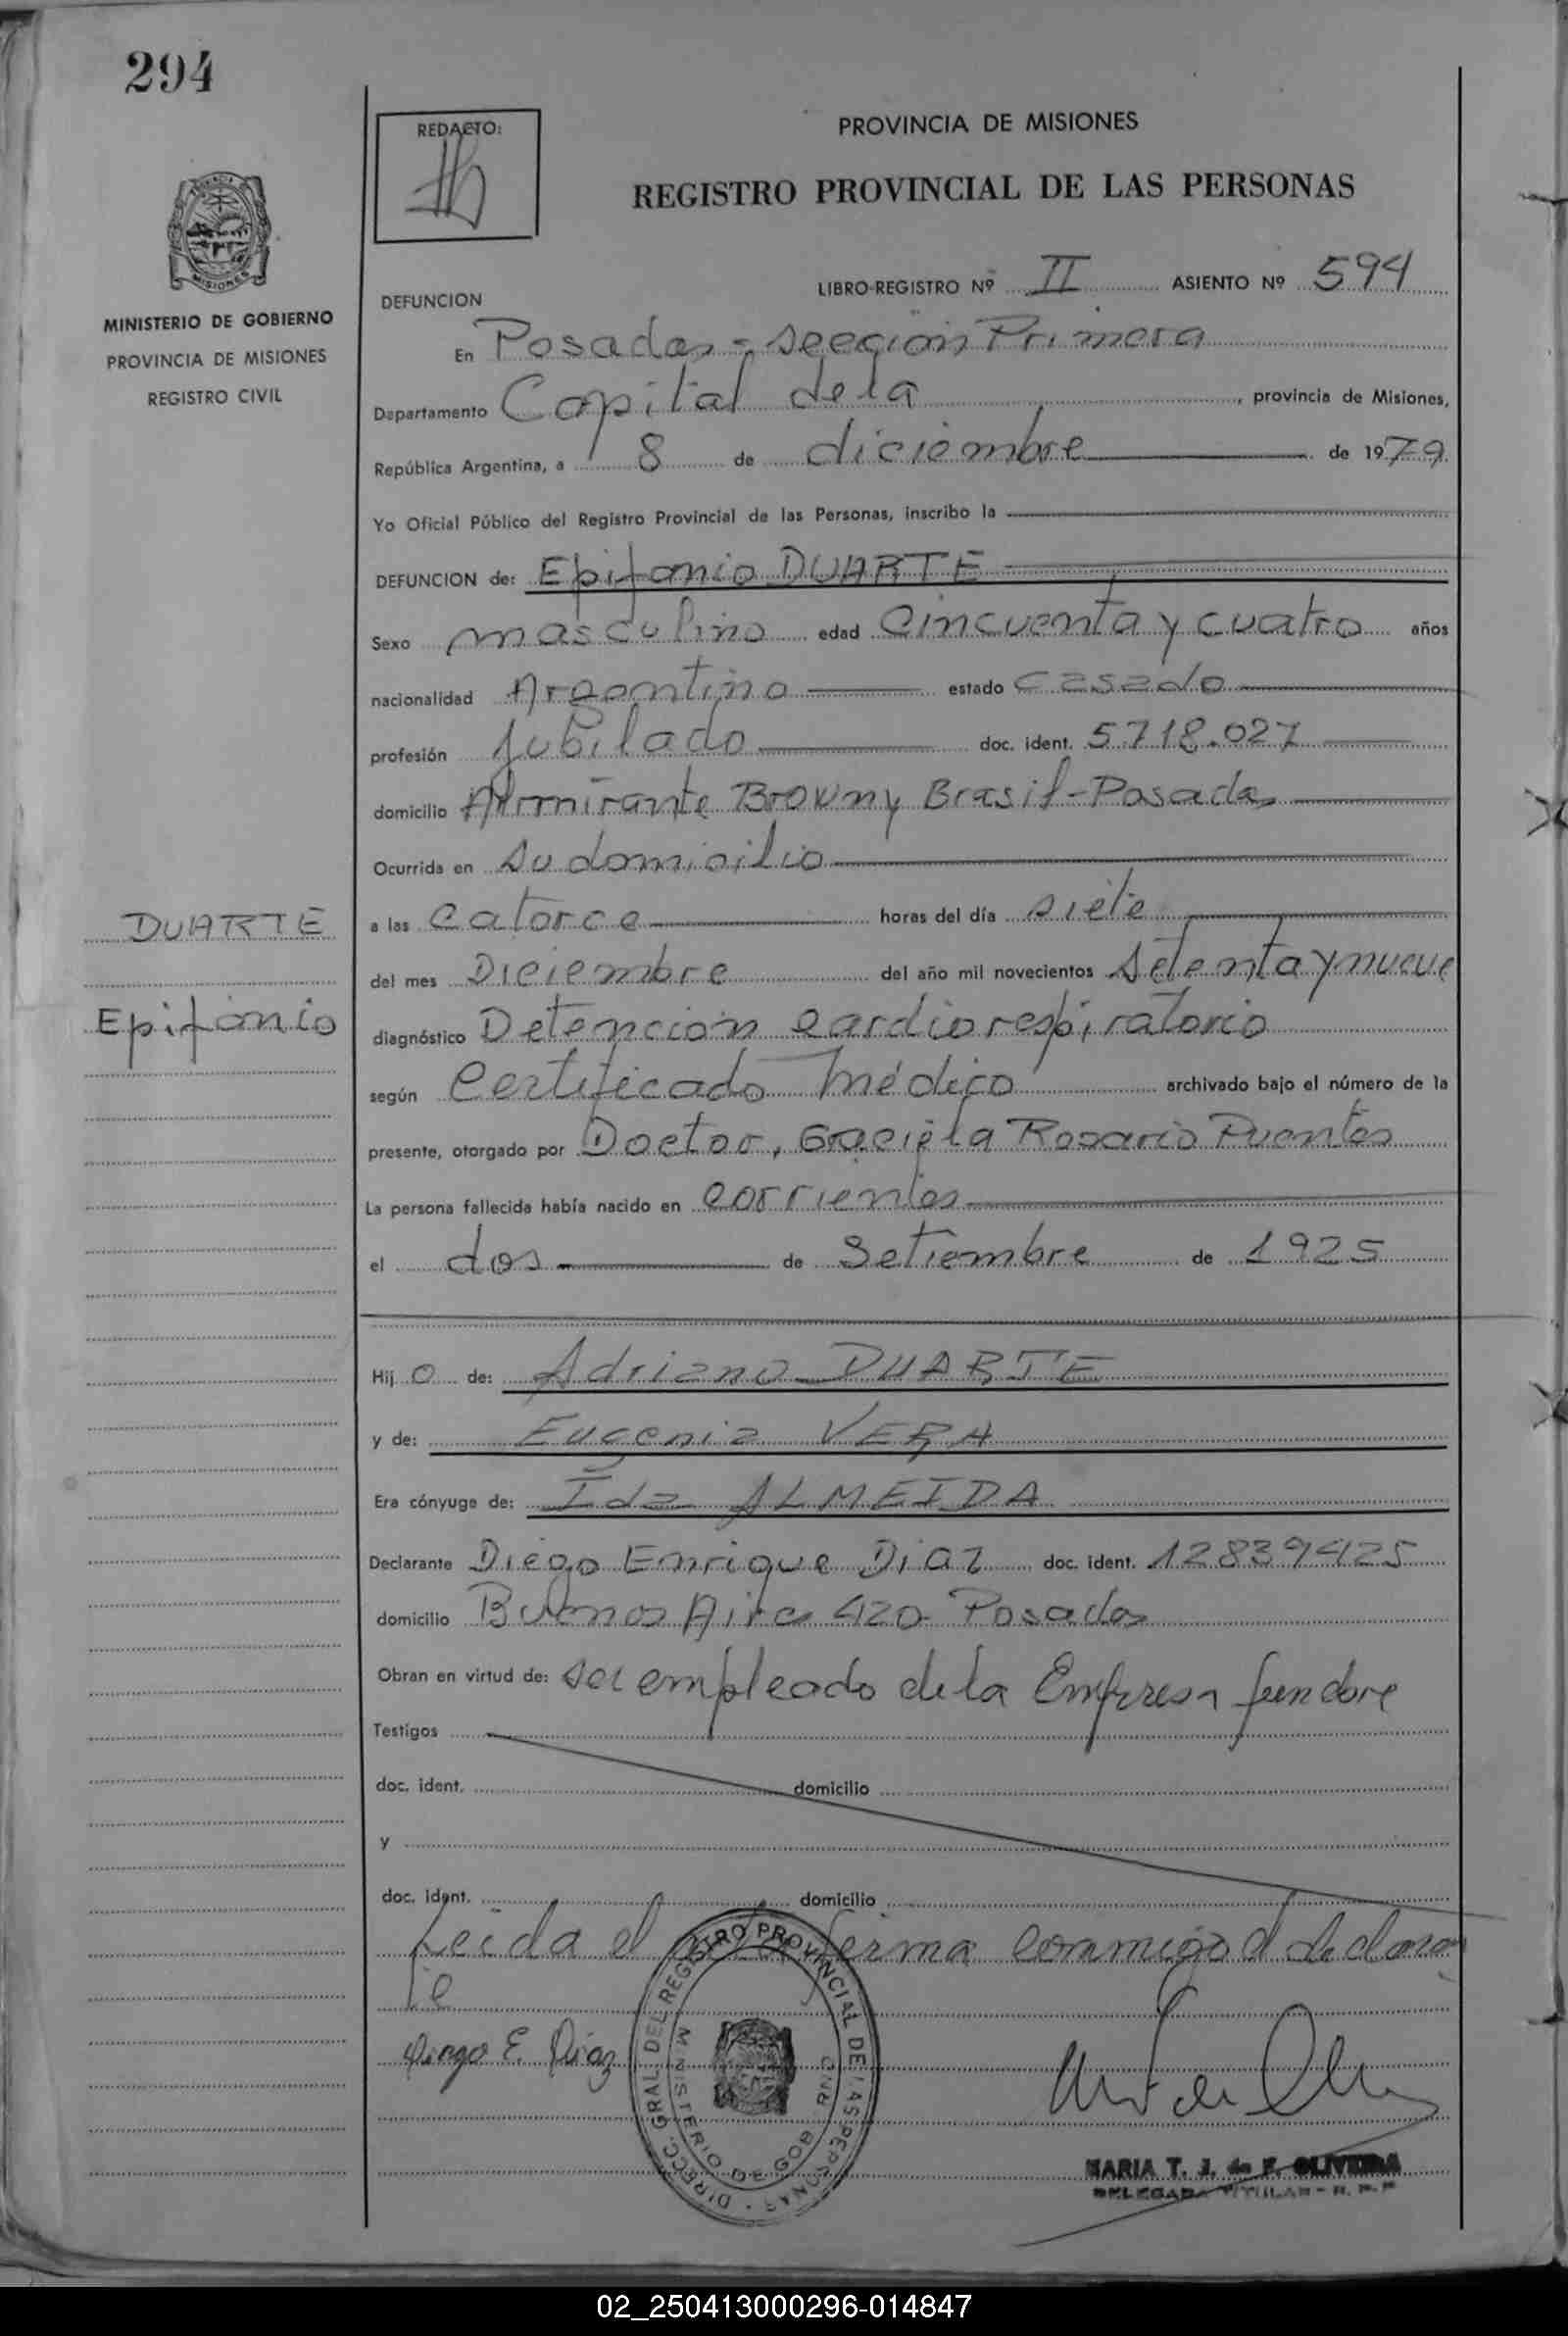 294
REDACTO:
PROVINCIA DE MISIONES
REGISTRO PROVINCIAL DE LAS PERSONAS
MISIONES
MINISTERIO DE GOBIERNO
PROVINCIA DE MISIONES
REGISTRO CIVIL
LIBRO-REGISTRO Nº II ASIENTO Nº 594
DEFUNCION
En Posadas - sección Primera
Departamento Capital de la, provincia de Misiones,
República Argentina, a 8 de diciembre de 1979
Yo Oficial Público del Registro Provincial de las Personas, inscribo la
DEFUNCION de: Epifanio DUARTE
Sexo masculino edad cincuenta y cuatro años
nacionalidad Argentino estado casado
profesión jubilado doc. ident. 5718.027
domicilio Almirante Brown y Brasil - Posadas
Ocurrida en su domicilio
DUARTE
Epifanio
a las catorce horas del día siete
del mes Diciembre del año mil novecientos setenta y nueve
diagnóstico Detención cardiorespiratorio
según Certificado Médico archivado bajo el número de la
presente, otorgado por Doctor, Graciela Rosario Puentes
La persona fallecida había nacido en Corrientes
el dos de Setiembre de 1925
Hijo de: Adriano DUARTE
y de: Eugenia VERA
Era cónyuge de: Ida ALMEIDA
Declarante Diego Enrique Diaz doc. ident. 12839425
domicilio Buenos Aires 420 - Posadas
Obran en virtud de: ser empleado de la Empresa funebre
Testigos
doc. ident. domicilio
y
doc. ident. domicilio
Leida el firma conmigo el declaran
te
Diego E. Diaz
DIREC. GRAL. DEL REGISTRO PROVINCIAL DE LAS PERSONAS
MINISTERIO DE GOB.
MARIA T. J. de F. OLIVEIRA
DELEGADA TITULAR - R. P. P.
02_250413000296-014847